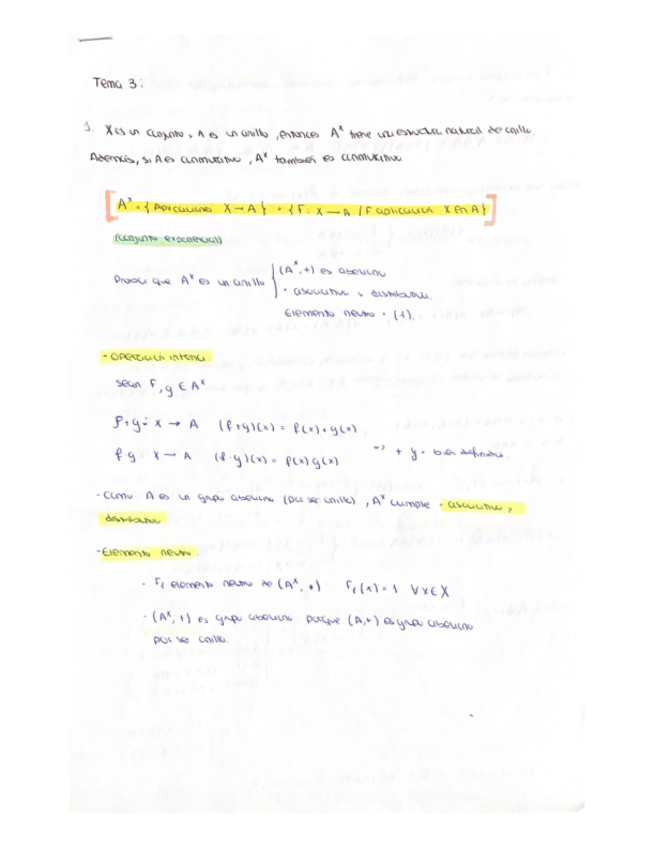 Tema 3:
1. X es un conjunto, A es un anillo, entonces A^x tiene una estructura natural de anillo.
Además, si A es conmutativo, A^x también es conmutativo
[A^x = {Aplicaciones X → A} = {f: X → A / f aplicación X en A}]
(conjunto exponencial)
que A^x es un anillo { (A^x, +) es abeliano
· asociativa y distributiva.
Elemento neutro · (1).
- Operación interna:
sean f, g ∈ A^x
f+g: X → A (f+g)(x) = f(x)+g(x)
f·g: X → A (f·g)(x) = f(x)g(x) => + y · bien definidas.
- Como A es un grupo abeliano (por ser anillo), A^x cumple · asociativa,
distributiva
- Elemento neutro:
- f₁ elemento neutro de (A^x, ·) f₁(x) = 1 ∀x∈X
- (A^x, +) es grupo abeliano porque (A,+) es grupo abeliano
por ser anillo.